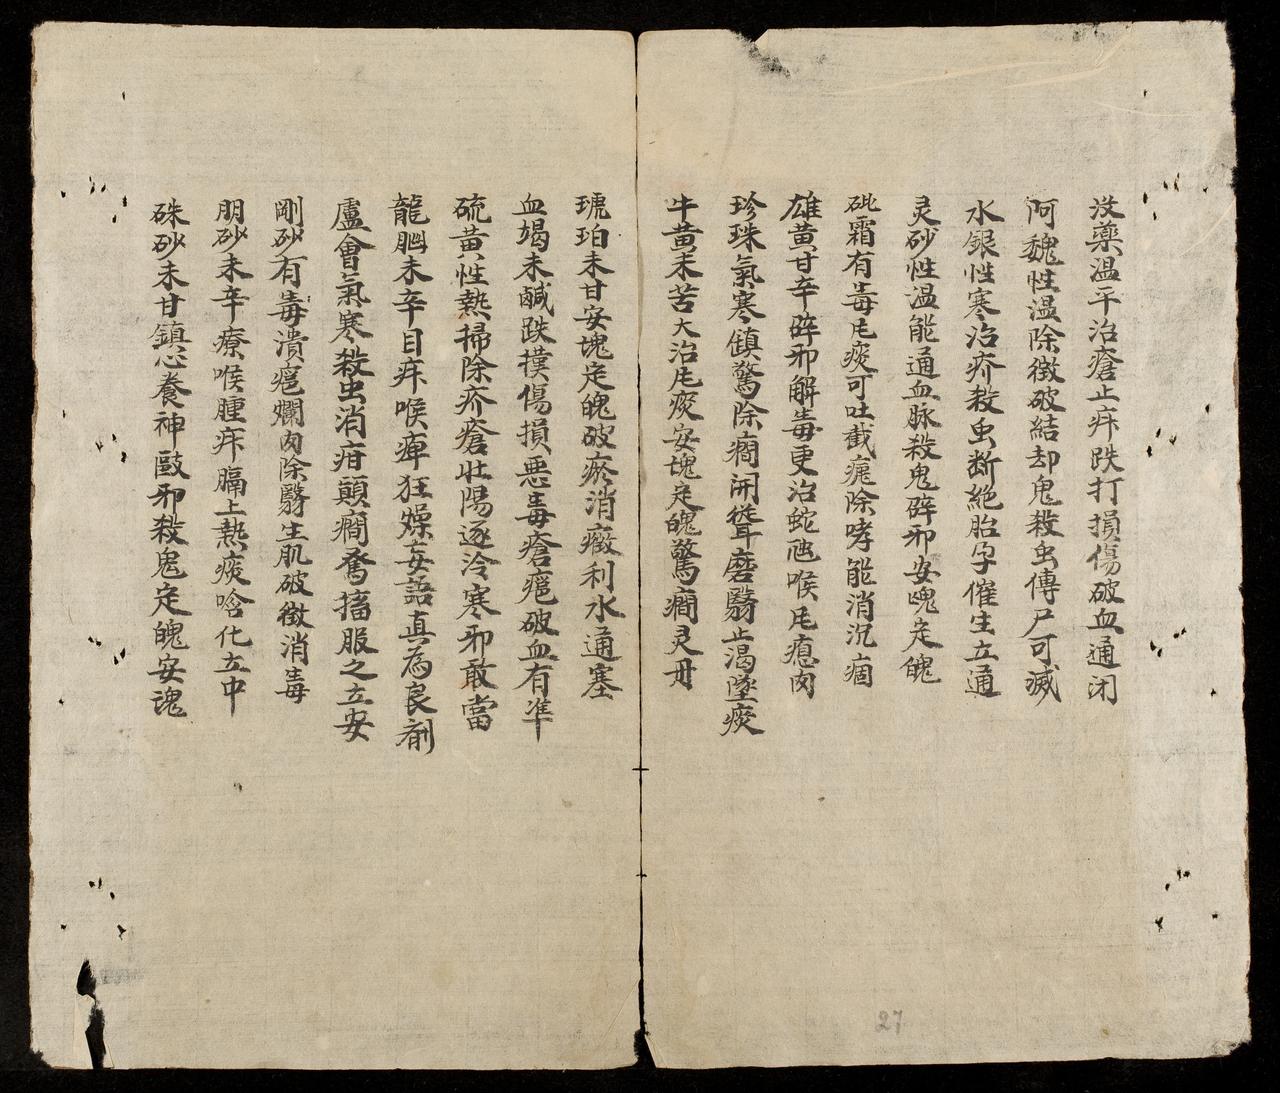 没藥温平治瘡止疼跌打損傷破血通闭
阿魏性温除徴破結却鬼殺虫傳尸可滅
水銀性寒治疥殺虫断絶胎孕催生立通
灵砂性温能通血脉殺鬼辟邪安魂定魄
砒霜有毒風痰可吐截瘧除哮能消沉痼
雄黄甘辛辟邪解毒更治蛇虺喉風瘜肉
珍珠氣寒鎮驚除癇開聾磨翳止渴墜痰
牛黄味苦大治風痰安魂定魄驚癇灵丹
琥珀味甘安魂定魄破瘀消癥利水通塞
血竭味鹹跌撲傷損悪毒瘡疤破血有準
硫黄性熱掃除疥瘡壮陽逐冷寒邪敢當
龍脳味辛目疼喉痺狂燥妄語真為良剤
盧會氣寒殺虫消疳顛癇驚搐服之立安
剛砂有毒潰疤爛肉除翳生肌破徴消毒
朋砂味辛療喉腫疼膈上熱痰噙化立中
硃砂味甘鎮心養神敺邪殺鬼定魄安魂
27